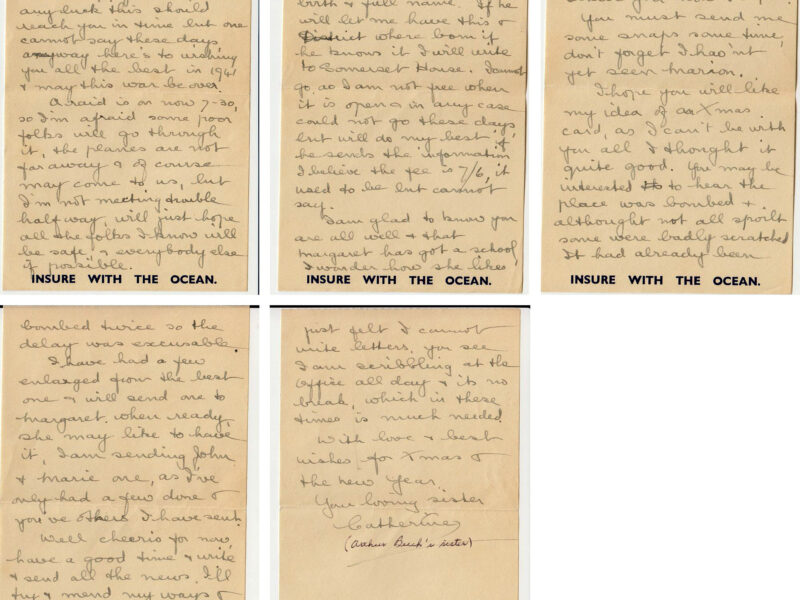 any luck this should
reach you in time but one
cannot say these days
anyway here's to wishing
you all the best in 1941
& may this war be over.
A raid is on now 7-30,
so I'm afraid some poor
folks will go through
it, the planes are not
far away & of course
may come to us, but
I'm not meeting trouble
half way, will just hope
all the folks I know will
be safe & everybody else
if possible.
INSURE WITH THE OCEAN.
birth & full name. If he
will let me have this &
District where born if
he knows it I will write
to Somerset House. I cannot
go, as I am not free when
it is open & in any case
could not go these days
but will do my best if
he sends the information
I believe the fee is 7/6, it
used to be but cannot
say.
I am glad to know you
are all well & that
Margaret has got a school
I wonder how she likes
INSURE WITH THE OCEAN.
You must send me
some snaps some time,
don't forget I hav'nt
yet seen Marion.
I hope you will like
my idea of an Xmas
card, as I can't be with
you all I thought it
quite good. You may be
interested to hear the
place was bombed &
althought not all spoilt
some were badly scratched
It had already been
INSURE WITH THE OCEAN.
bombed twice so the
delay was excusable.
I have had a few
enlarged from the best
one & will send one to
Margaret when ready,
she may like to have
it, I am sending John
& Marie one, as I've
only had a few done &
you've others I have sent.
Well cheerio for now,
have a good time & write
& send all the news. I'll
try & mend my ways &
just felt I cannot
write letters, you see
I am scribbling at the
office all day & its no
break, which in these
times is much needed.
With love & best
wishes for Xmas &
the new Year.
Your loving sister
Catherine
(Arthur Buck's sister)